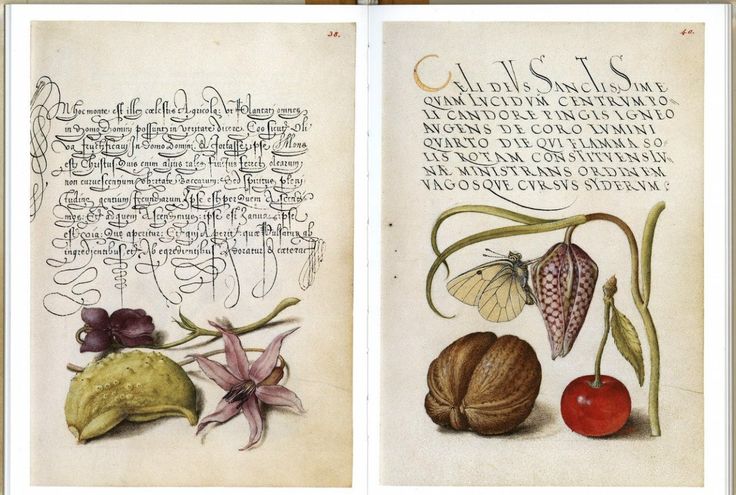 38.
In hoc monte est ille cœlestis Agricola: Vt Plantati omnes
in Domo Domini possint in Veritate dicere. Ego sicut Oli
va fructificavi in Domo Domini, et fortasse ipse Mons
est Christus. Quis enim alius tales fructus ferret olearum:
non curvescentium vbertate Baccarum: Sed spiritus pleni
tudine gentium fœcundarum. Ipse est per quem Ascendi
mus: Et ad quem Ascendimus: ipse est Ianua: ipse
est via: Quæ aperitur: Et qui Aperit: quæ Pulsatur ab
ingredientibus: et Ab egredientibus Adoratur et cæterat
40.
CŒLI DEVS SANCTISSIME
QVAM LVCIDVM CENTRVM PO-
LI CANDORE PINGIS IGNEO
AVGENS DECORO LVMINI
QVARTO DIE QVI FLAMMA SO-
LIS ROTAM CONSTITVENS LV-
NÆ MINISTRANS ORDINEM
VAGOSQVE CVRSVS SYDERVM: